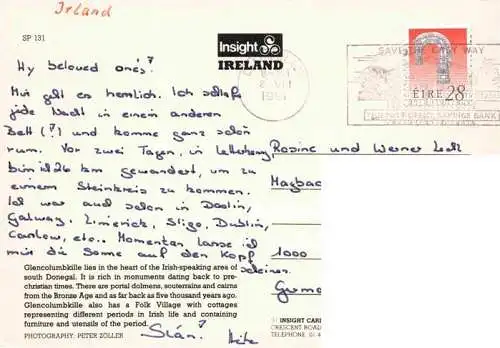 Irland
SP 131
Insight
IRELAND
SAVE THE EASY WAY
SAVINGS BANK
ÉIRE 28
My beloved ones!
Mir geht es herrlich. Ich schlafe
jede Nacht in einem anderen
Bett (!) und komme ganz schön
rum. Vor zwei Tagen, in Letterkenny,
bin ich 26 km gewandert, um zu
einem Steinkreis zu kommen.
Ich war auch schon in Doolin,
Galway, Limerick, Sligo, Dublin,
Carlow, etc.. Momentan lasse ich
mir die Sonne auf den Kopf
scheinen.
Slán!
Rosine und Werner
1000
Glencolumbkille lies in the heart of the Irish-speaking area of
south Donegal. It is rich in monuments dating back to pre-
christian times. There are portal dolmens, souterrains and cairns
from the Bronze Age and as far back as five thousand years ago.
Glencolumbkille also has a Folk Village with cottages
representing different periods in Irish life and containing
furniture and utensils of the period.
PHOTOGRAPHY: PETER ZÖLLER
INSIGHT CAR
CRESCENT ROAD
TELEPHONE 061